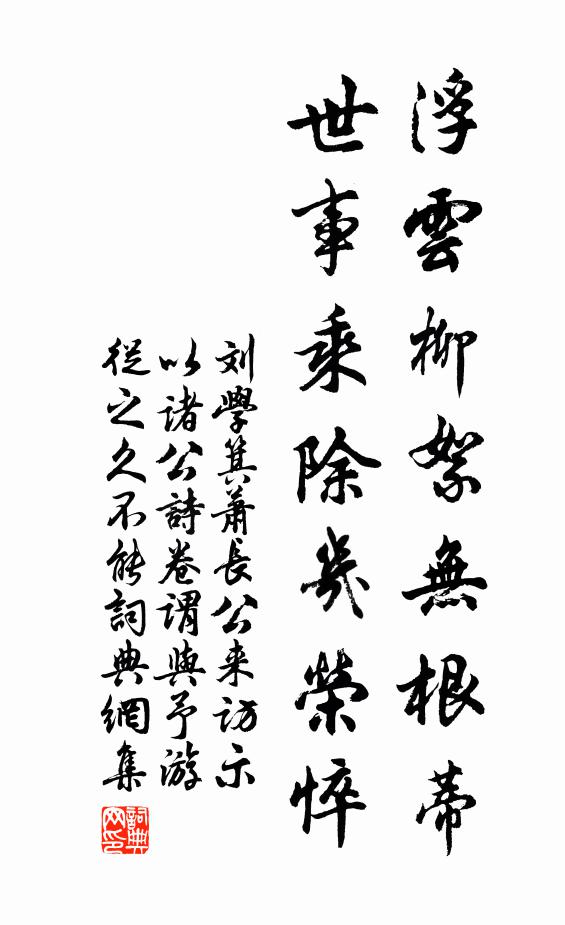 浮雲柳絮無根蒂
世事乘除幾榮悴
刘學箕蕭長公来访示
以诸公詩卷謂與予游
從之久不能詞典網集
詞典
网印